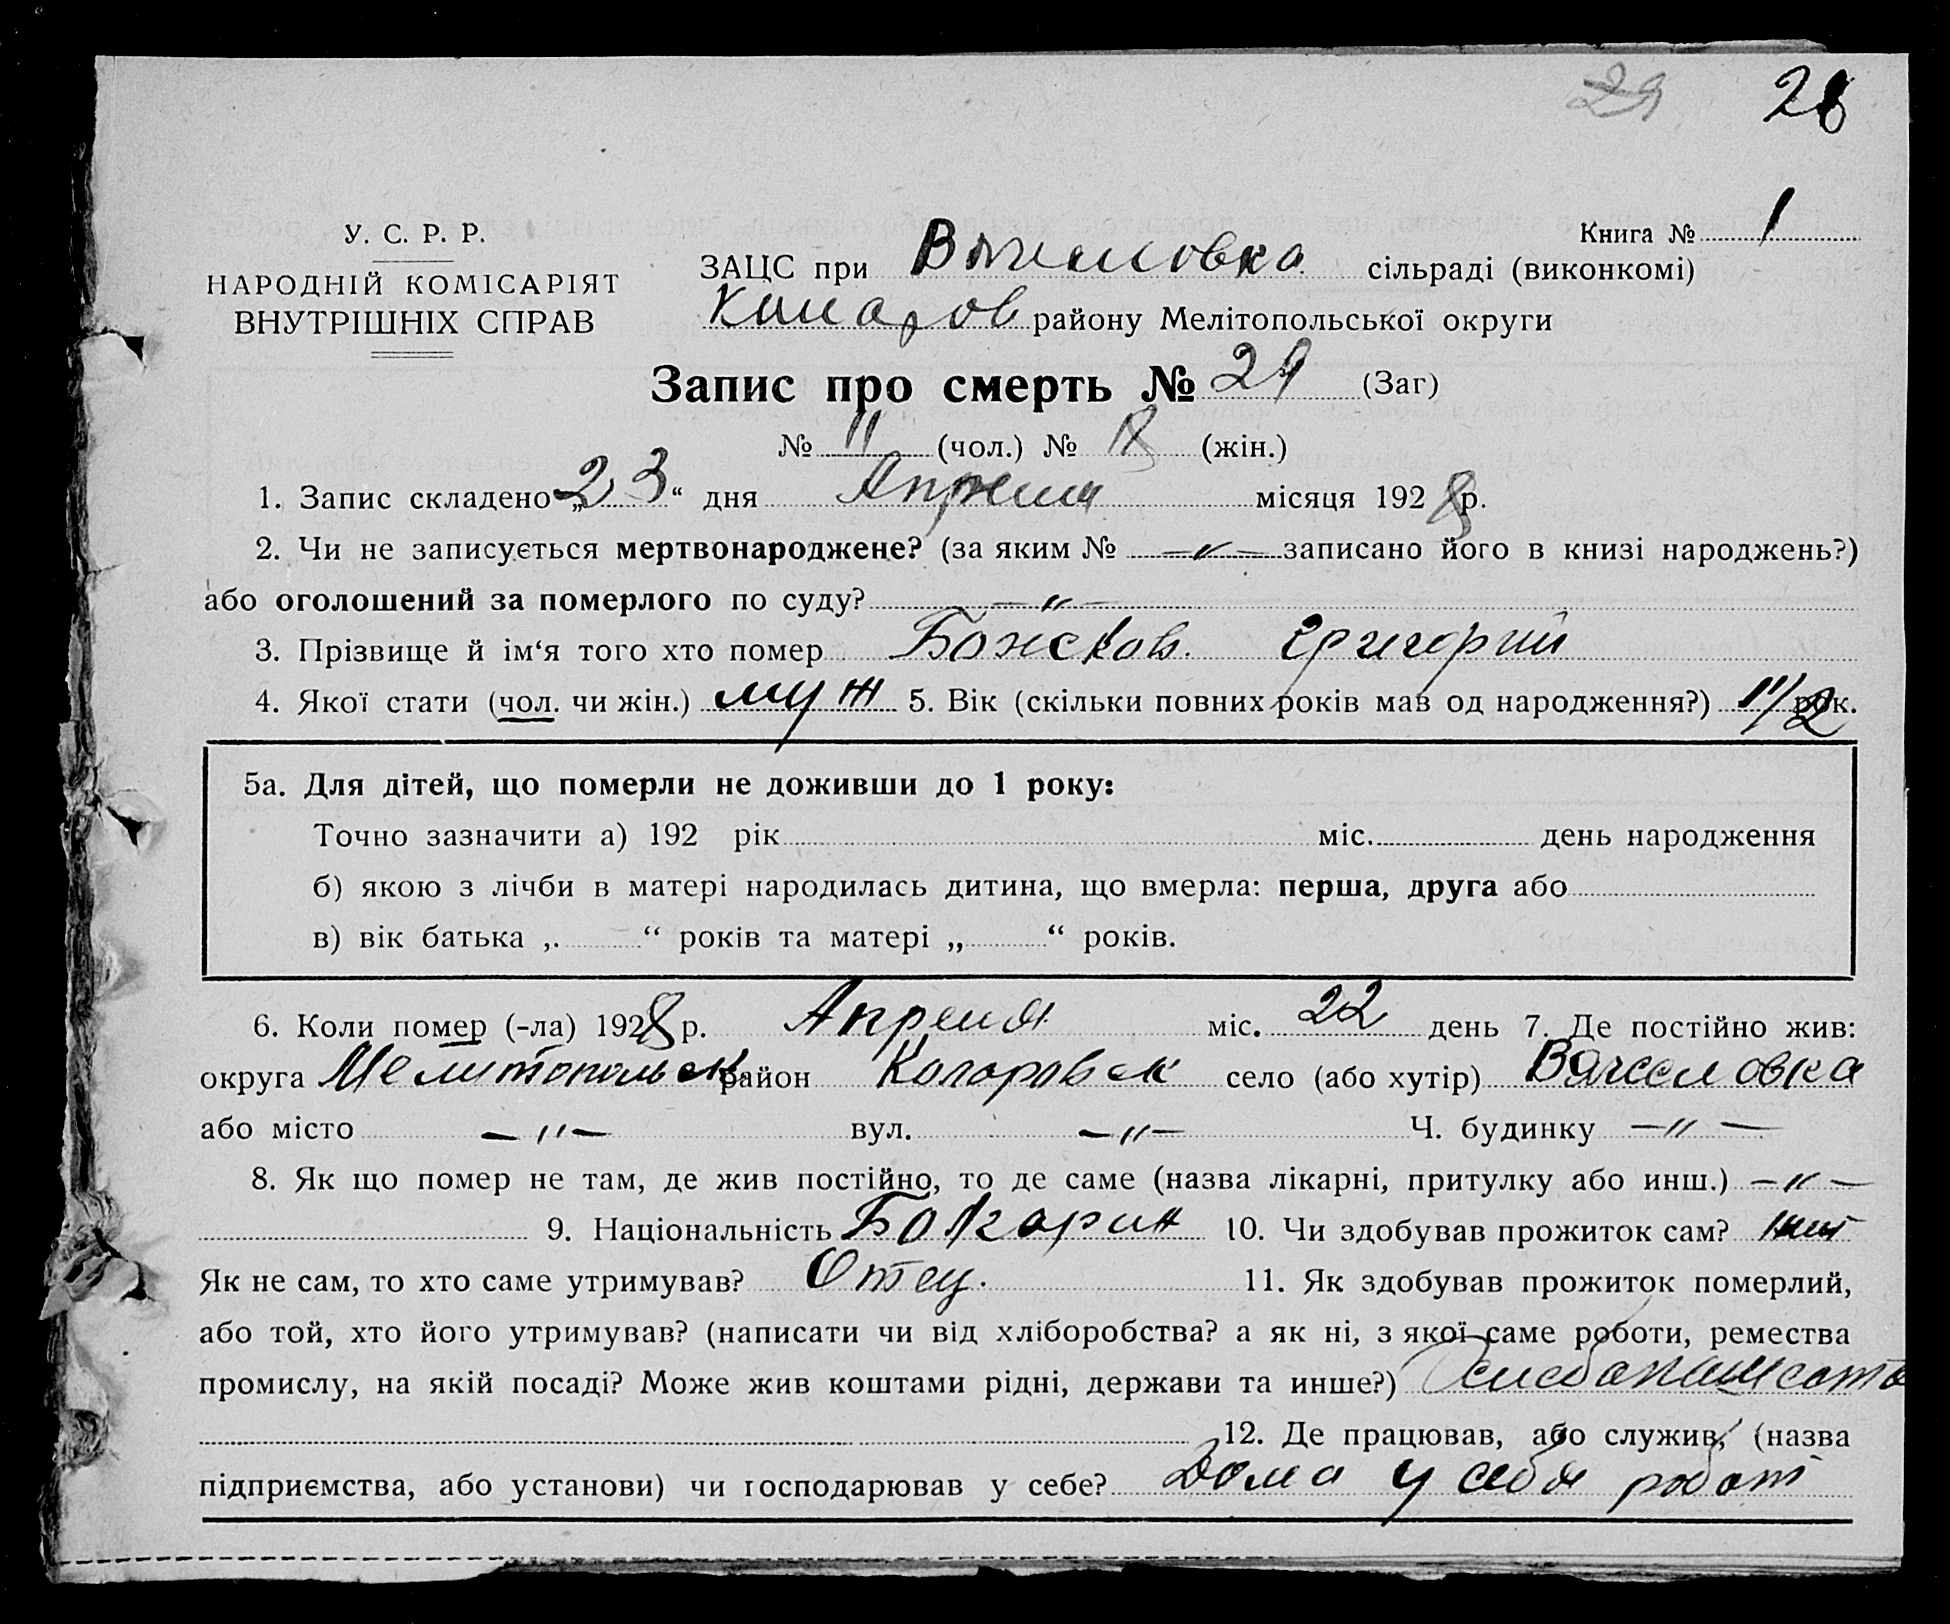 29 28
У. С. Р. Р.
НАРОДНІЙ КОМІСАРІЯТ
ВНУТРІШНІХ СПРАВ
Книга № 1
ЗАЦС при Вячеловка сільраді (виконкомі)
районy Мелітопольської округи
Запис про смерть № 29 (Заг)
№ 11 (чол.) № 18 (жін.)
1. Запис складено „23“ дня Апреля місяця 1928 р.
2. Чи не записується мертвонароджене? (за яким № —"— записано його в книзі народжень?)
або оголошений за померлого по суду? —"—
3. Прізвище й ім‘я того хто помер Божков Григорий
4. Якої стати (чол. чи жін.) муж 5. Вік (скільки повних років мав од народження?) 1 1/2 рок.
5а. Для дітей, що померли не доживши до 1 року:
Точно зазначити а) 192 рік міс. день народження
б) якою з лічби в матері народилась дитина, що вмерла: перша, друга або
в) вік батька „ “ років та матері „ “ років.
6. Коли помер (-ла) 1928 р. Апреля міс. 22 день 7. Де постійно жив:
округа Мелитопольск район Коларовск село (або хутір) Вячеславка
або місто —"— вул. —"— Ч. будинку —"—
8. Як що помер не там, де жив постійно, то де саме (назва лікарні, притулку або инш.) —"—
9. Національність Болгарин 10. Чи здобував прожиток сам?
Як не сам, то хто саме утримував? Отец. 11. Як здобував прожиток померлий,
або той, хто його утримував? (написати чи від хліборобства? а як ні, з якої саме роботи, ремества
промислу, на якій посаді? Може жив коштами рідні, держави та инше?)
12. Де працював, або служив, (назва
підприємства, або установи) чи господарював у себе? Дома у себя работ